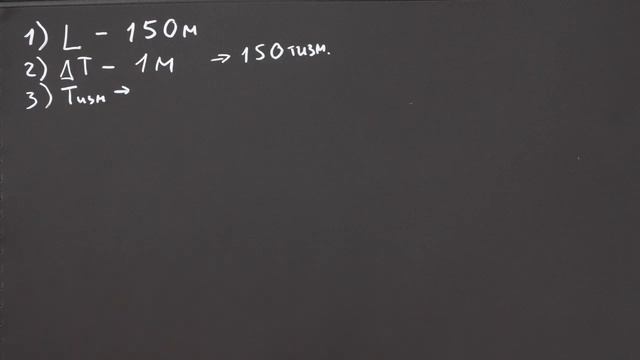 1) L - 150м
2) ΔT - 1м → 150 тизм.
3) Tизм →